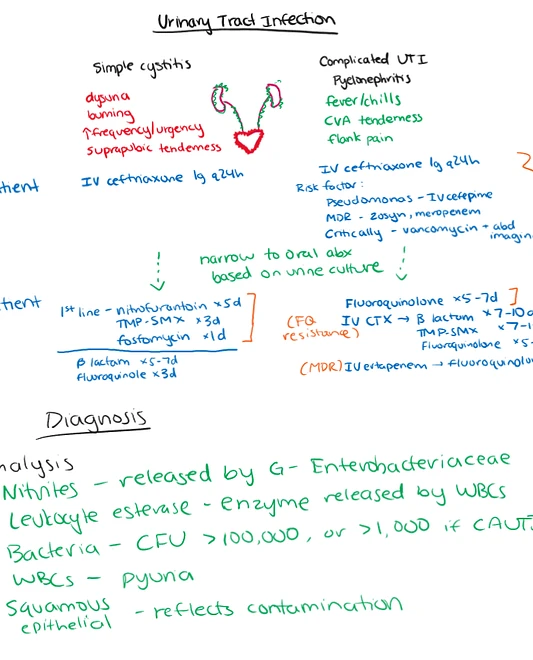 Urinary Tract Infection
Simple cystitis
dysuria
burning
↑frequency/urgency
suprapubic tenderness
Complicated UTI
Pyelonephritis
fever/chills
CVA tenderness
flank pain
tient
IV ceftriaxone 1g q24h
IV ceftriaxone 1g q24h
Risk factor:
Pseudomonas - IV cefepime
MDR - zosyn, meropenem
Critically - vancomycin + abd
imagin
narrow to oral abx
based on urine culture
tient
1st line - nitrofurantoin x5d
TMP-SMX x3d
fosfomycin x1d
β lactam x5-7d
fluoroquinole x3d
Fluoroquinolone x5-7d
(FQ
resistance)
IV CTX → β lactum x7-10d
TMP-SMX x7-1
Fluoroquinolone x5-
(MDR) IV ertapenem → fluoroquinolon
Diagnosis
nalysis
Nitrites - released by G- Enterobacteriaceae
Leukocyte esterase - enzyme released by WBCs
Bacteria - CFU >100,000, or >1,000 if CAUTI
WBCs - pyuria
Squamous
epithelial - reflects contamination